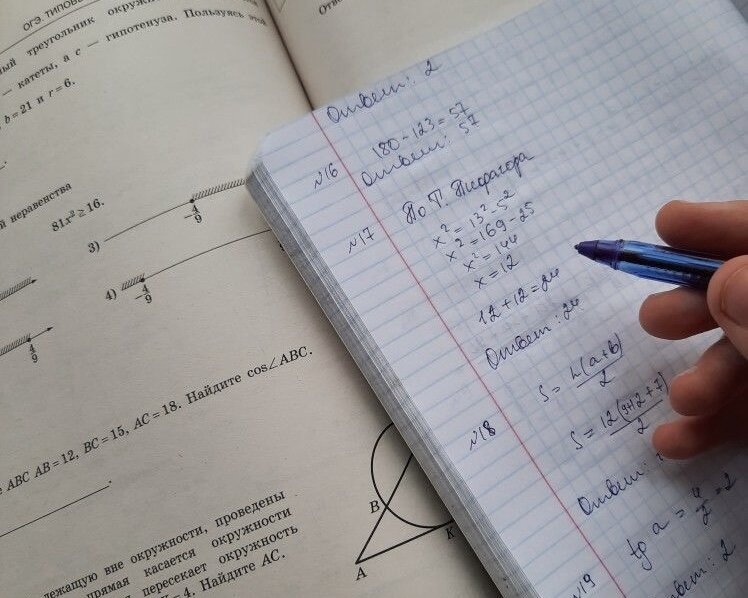 ОГЭ. ТИПОВ
ный треугольник окружн
— катеты, а c — гипотенуза. Пользуясь этой
b = 21 и r = 6.
неравенства
81x² ≥ 16.
3)
-4/9
4)
-4/9
4/9
ABC AB = 12, BC = 15, AC = 18. Найдите cos∠ABC.
лежащую вне окружности, проведены
прямая касается окружности
пересекает окружность
4. Найдите AC.
B
A
K
Отве
Ответ: 2
№16
180 - 123 = 57
Ответ: 57
№17
По т. Пифагора
x² = 13² - 5²
x² = 169 - 25
x² = 144
x = 12
12 + 12 = 24
Ответ: 24
№18
S = h(a+b)/2
S = 12(9+12+7)/2
Ответ:
№19
tg a = 4/2 = 2
Ответ: 2